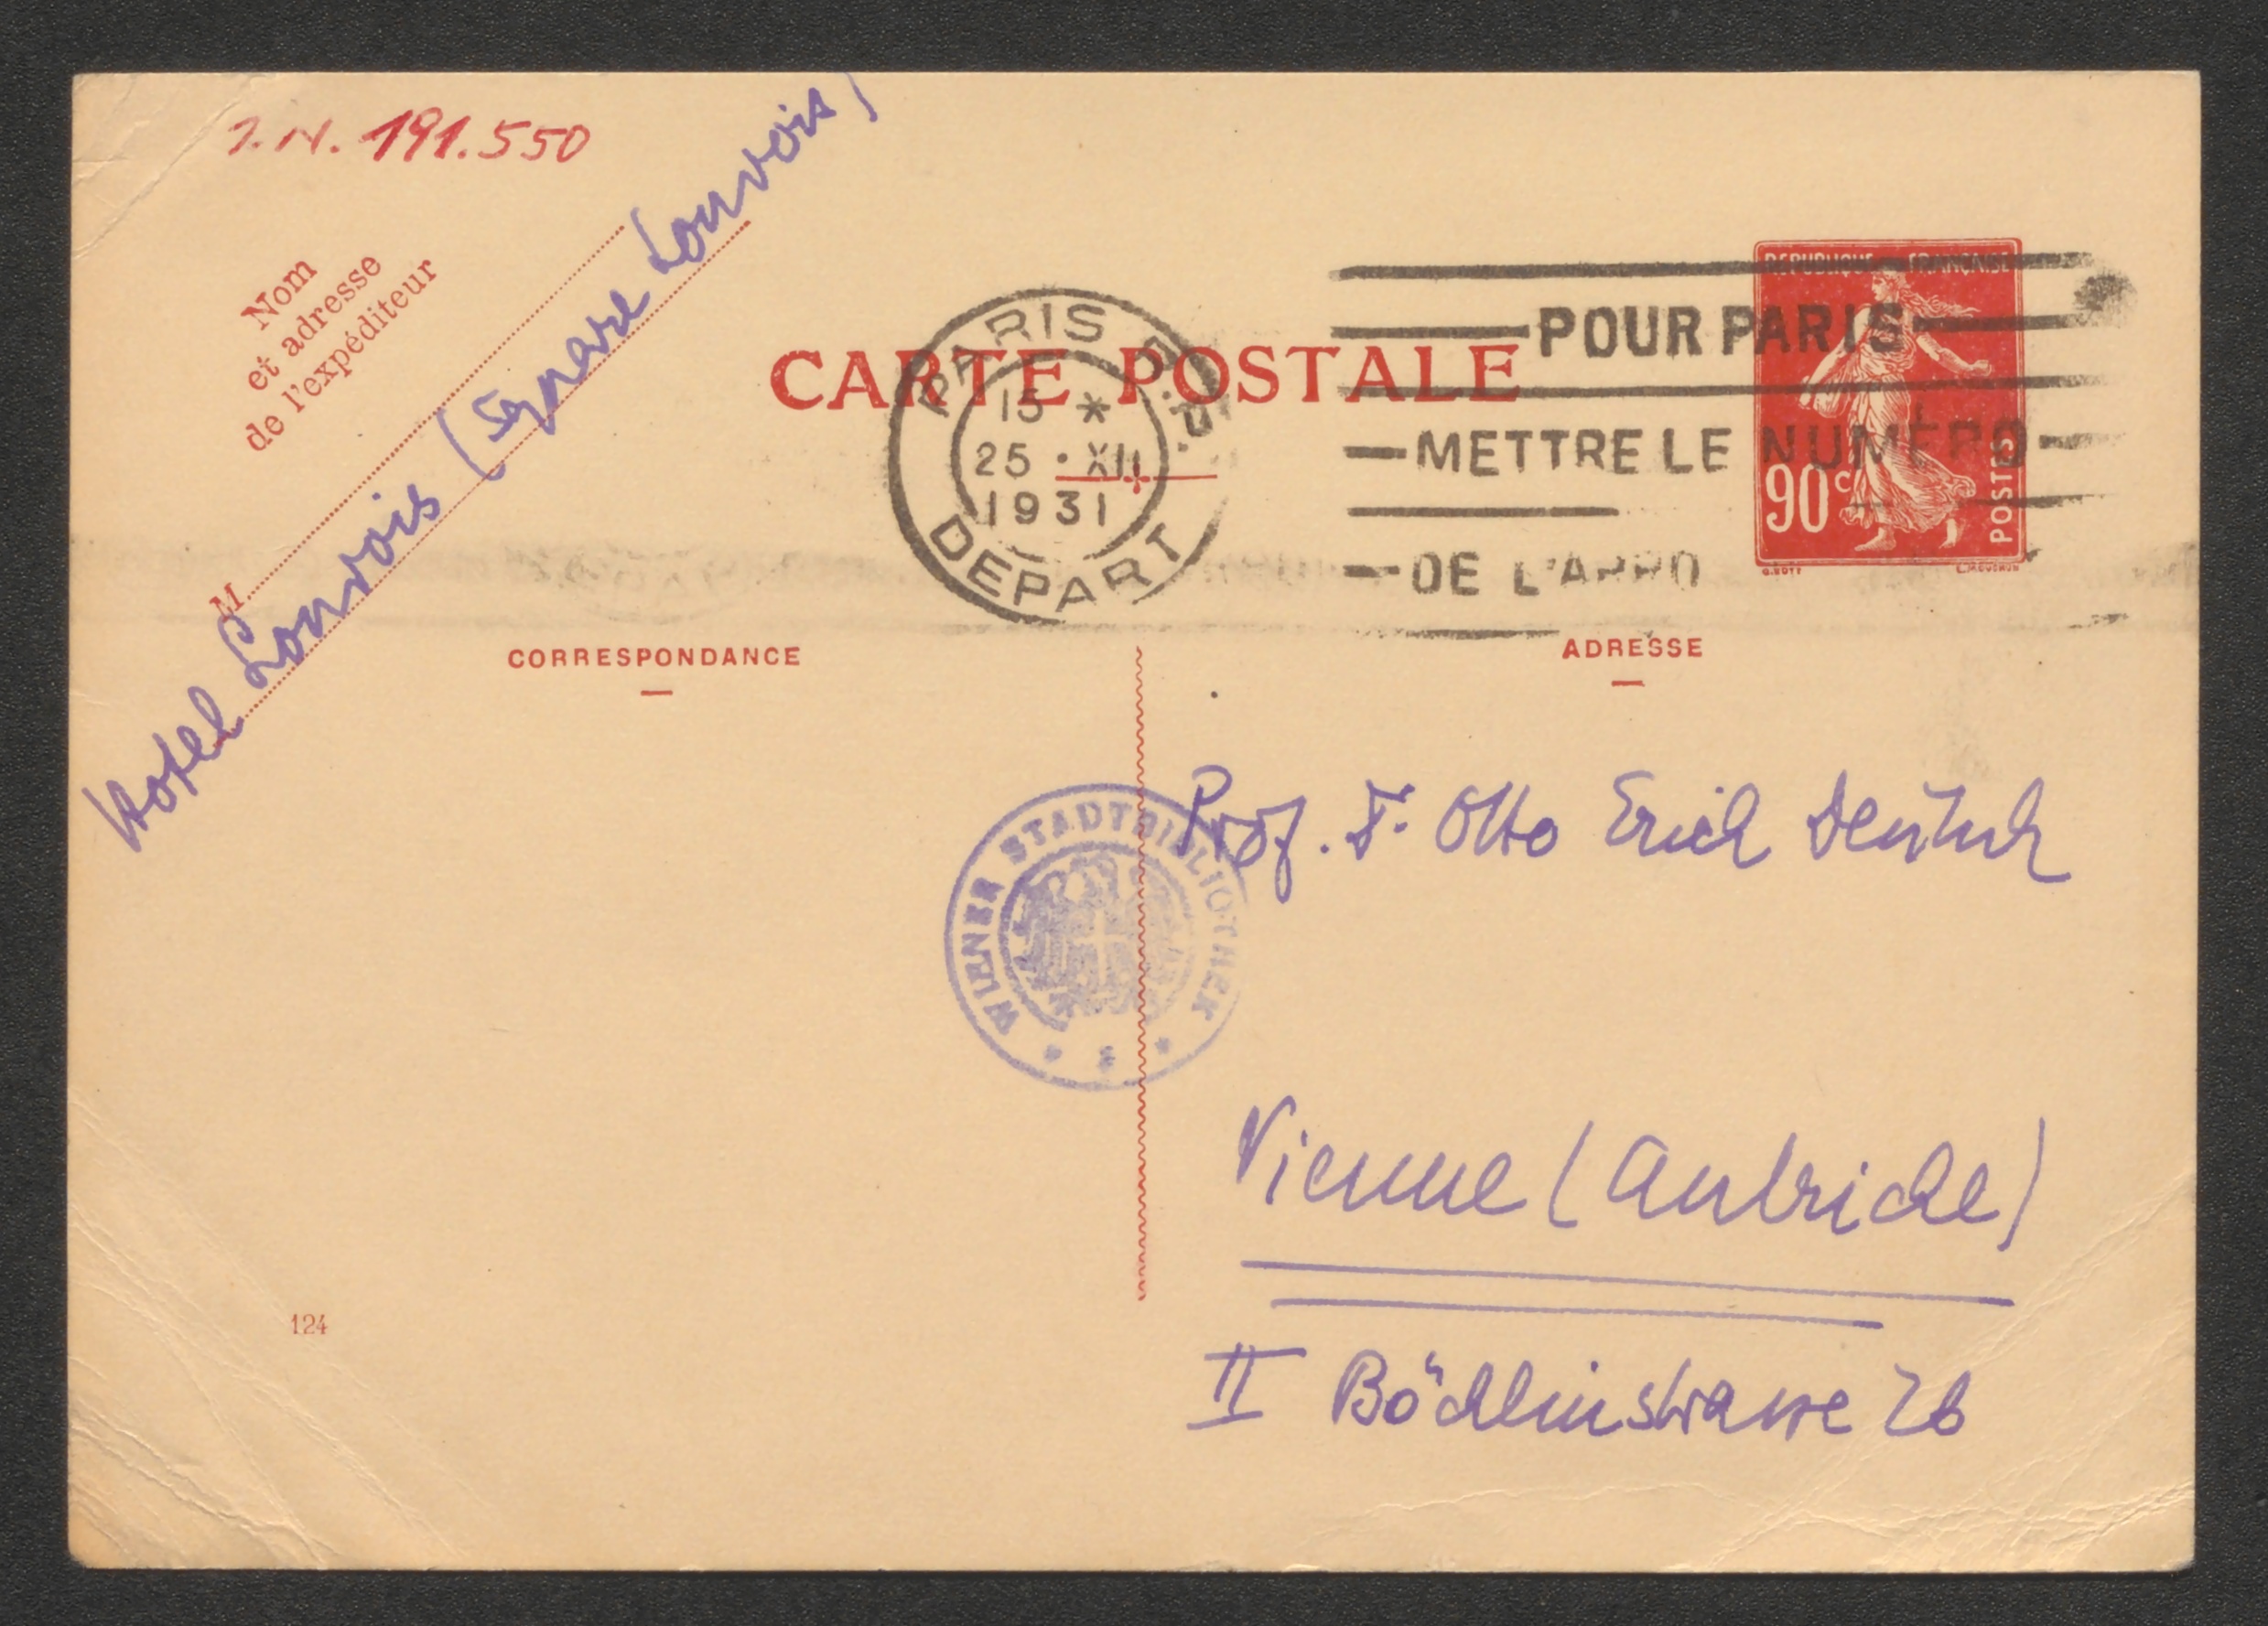 I.N. 191.550
Nom
et adresse
de l'expéditeur
M
Hotel Louvois (Square Louvois)
CARTE POSTALE
PARIS
DEPART
15 *
25 · XII
1931
POUR PARIS
METTRE LE NUMÉRO
DE L'ARRO
REPUBLIQUE FRANÇAISE
90c
POSTES
CORRESPONDANCE
ADRESSE
WIENER STADTBIBLIOTHEK
Prof. Dr. Otto Erich Deutsch
Vienne (Autriche)
II Böcklinstrasse 26
124